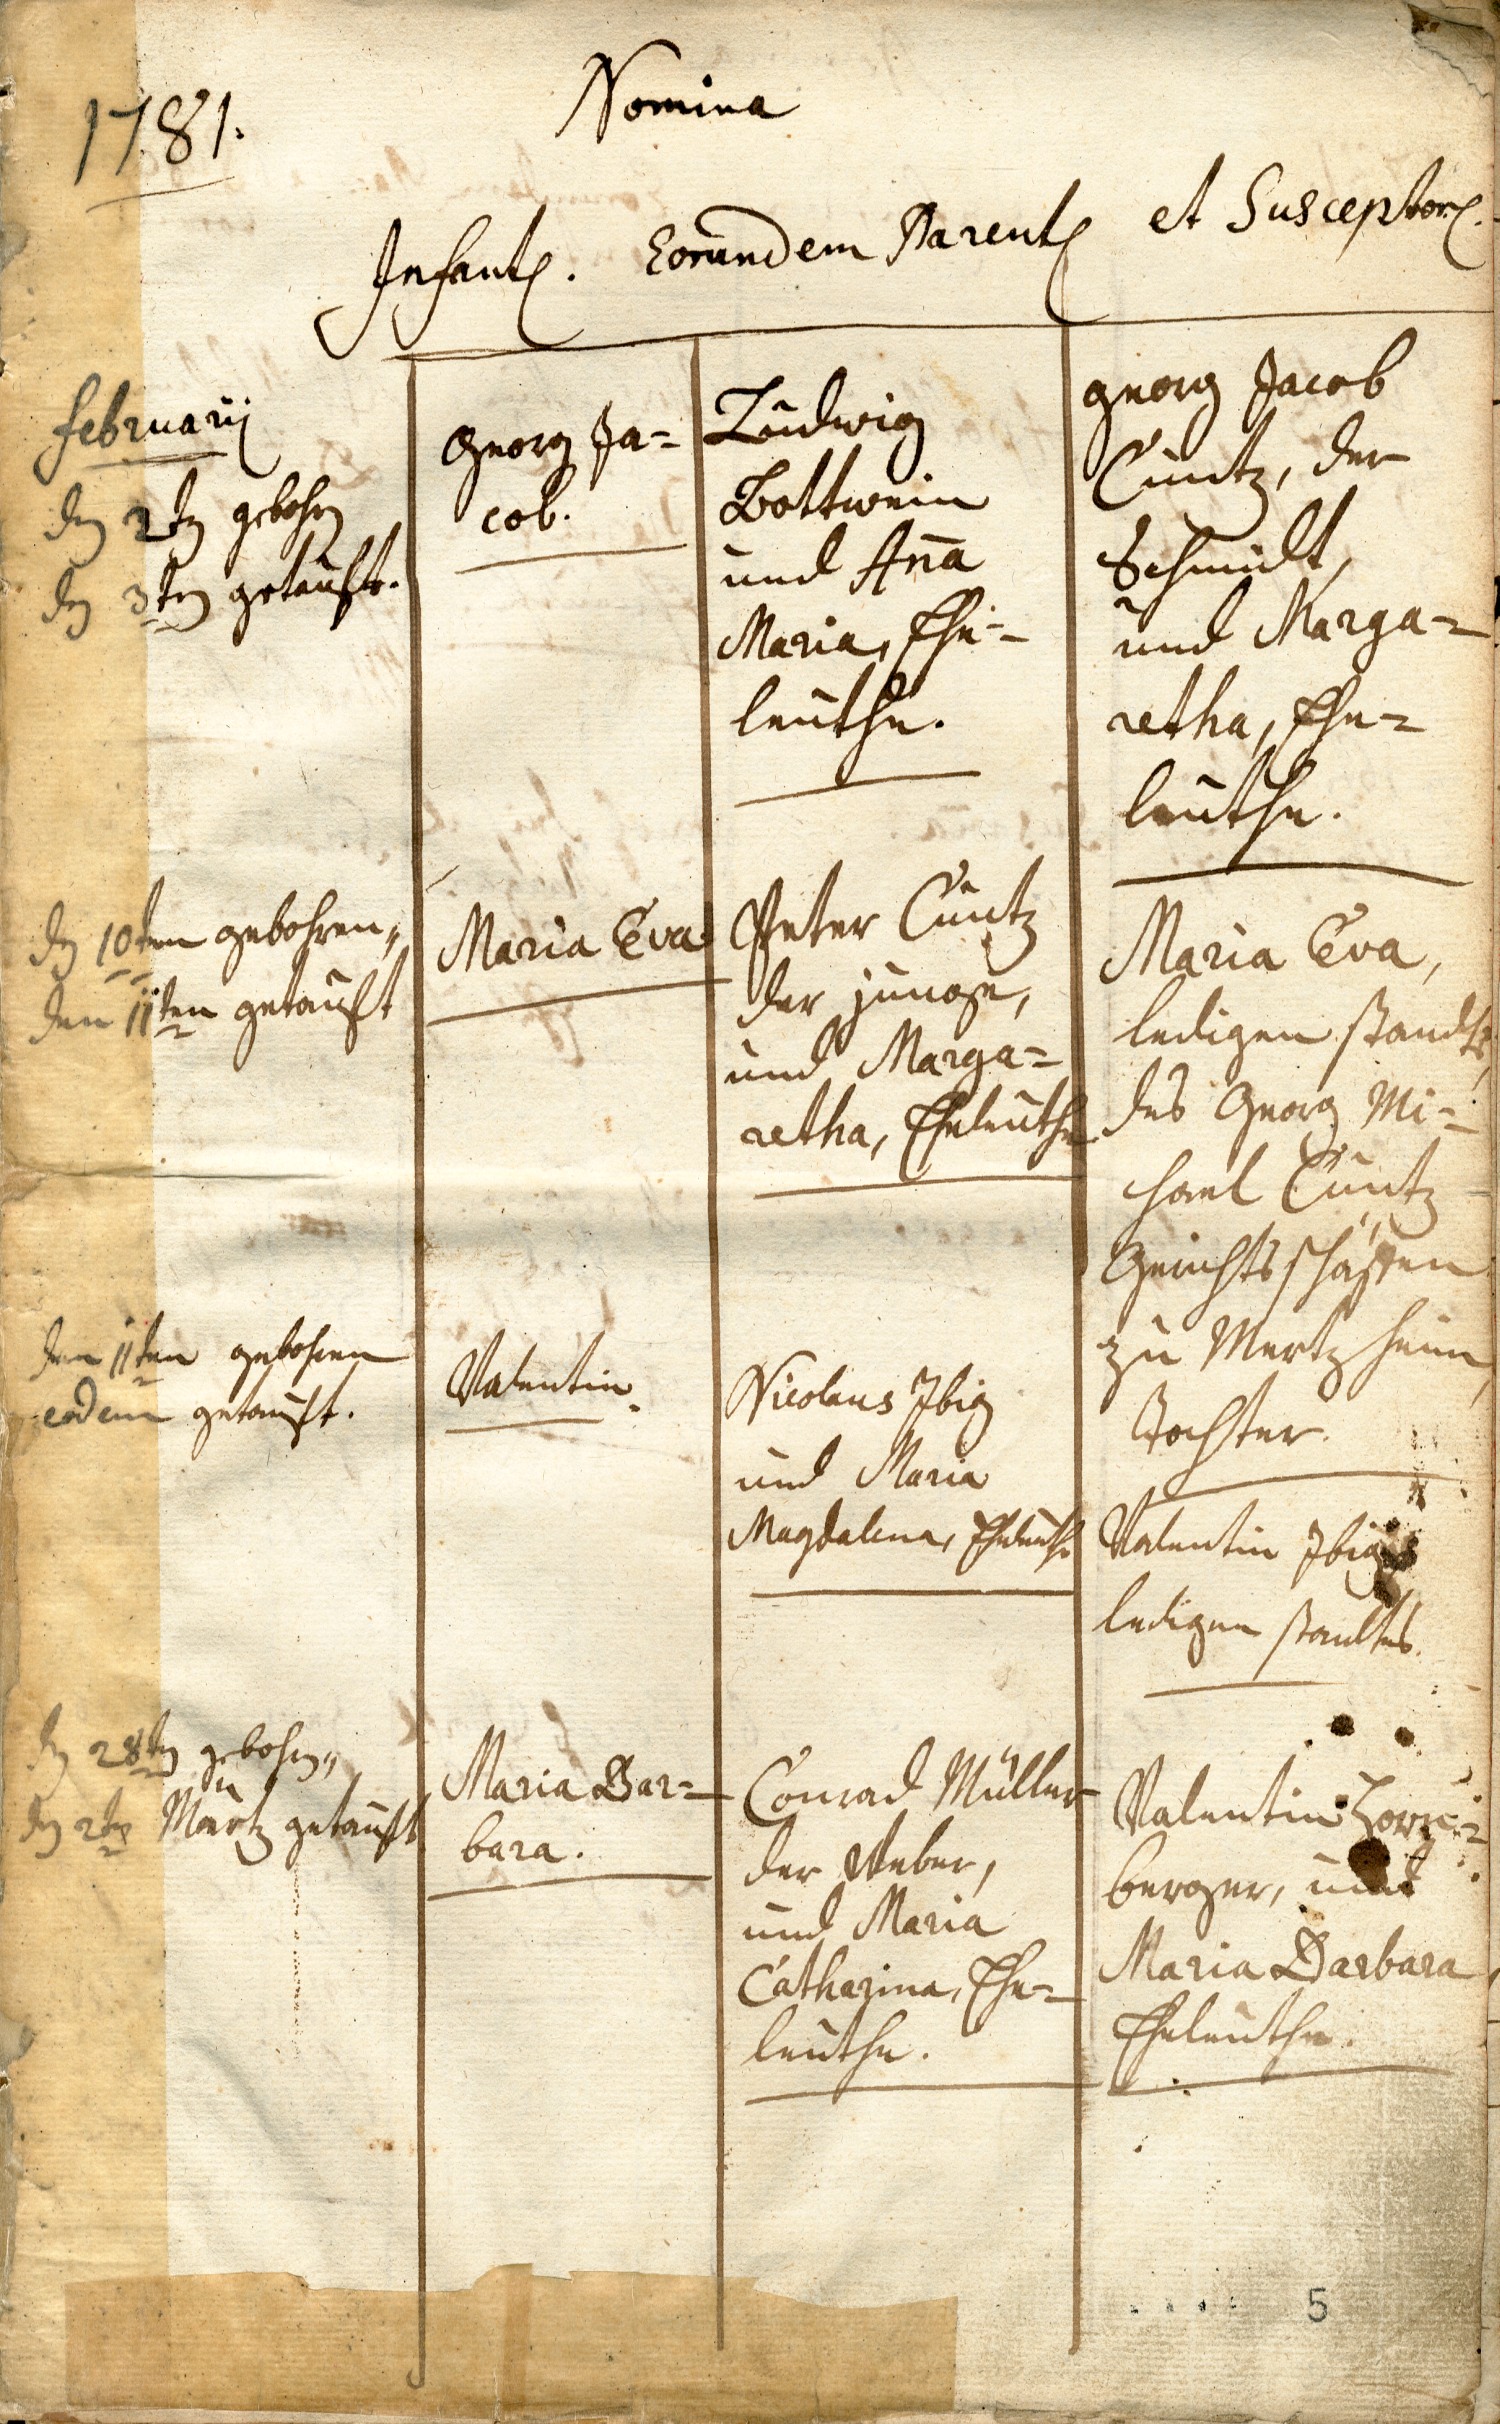 1781.
Nomina
Infant. Eorundem Parent et Susceptor.
Februarij
den 2ten gebohren
den 3ten getauft.
Georg Ja=
cob.
Ludwig
Bottwein
und Anna
Maria, Ehe=
leuthe.
Georg Jacob
Cuntz, der
Schmidt,
und Marga=
retha, Ehe=
leuthe.
den 10ten gebohren,,
den 11ten getauft
Maria Eva
Peter Cuntz
der junge,
und Marga=
retha, Eheleuthe
Maria Eva,
ledigen standts,
des Georg Mi=
chael Cuntz
Gerichtsschäffen
zu Mertzheim,
Tochter.
den 11ten gebohren
eodem getauft.
Valentin.
Nicolaus Ibig
und Maria
Magdalena, Eheleuthe
Valentin Ibig
ledigen standtes.
den 28ten gebohren,,
den 2ten Märtz getauft
Maria Bar=
bara.
Conrad Müller
der Weber,
und Maria
Catharina, Ehe=
leuthe.
Valentin
berger, und
Maria Barbara
Eheleuthe.
5